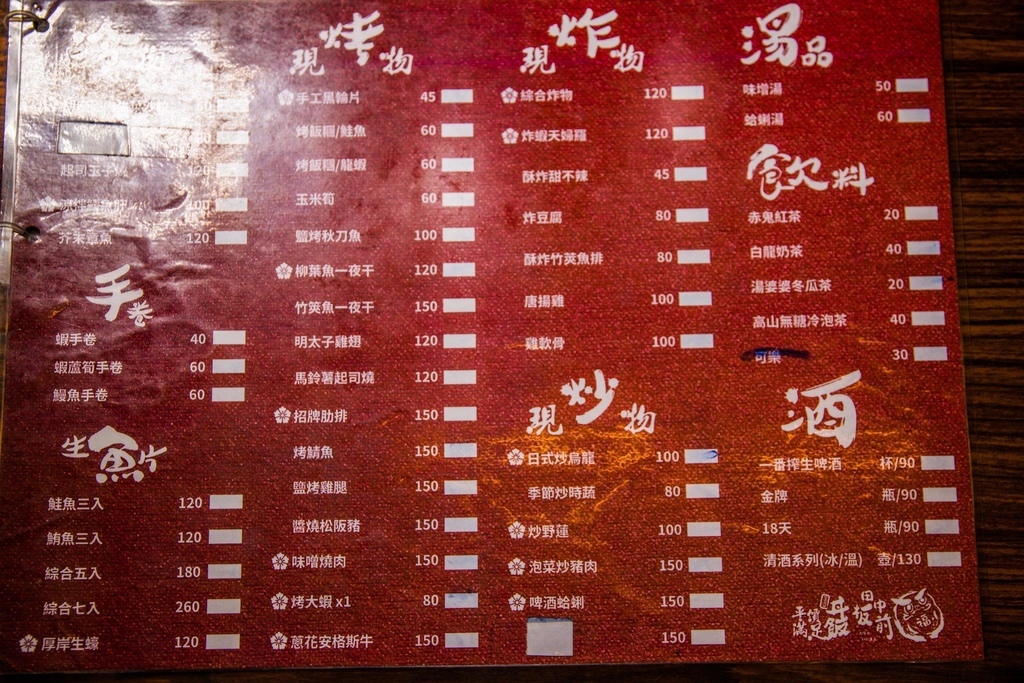 物
起司玉子燒 120
100
芥末章魚 120
手卷
蝦手卷 40
蝦蘆筍手卷 60
鰻魚手卷 60
生魚片
鮭魚三入 120
鮪魚三入 120
綜合五入 180
綜合七入 260
厚岸生蠔 120
現烤物
手工黑輪片 45
烤飯糰/鮭魚 60
烤飯糰/龍蝦 60
玉米筍 60
鹽烤秋刀魚 100
柳葉魚一夜干 120
竹筴魚一夜干 150
明太子雞翅 120
馬鈴薯起司燒 120
招牌肋排 150
烤鯖魚 150
鹽烤雞腿 150
醬燒松阪豬 150
味噌燒肉 150
烤大蝦 x1 80
蔥花安格斯牛 150
現炸物
綜合炸物 120
炸蝦天婦羅 120
酥炸甜不辣 45
炸豆腐 80
酥炸竹筴魚排 80
唐揚雞 100
雞軟骨 100
現炒物
日式炒烏龍 100
季節炒時蔬 80
炒野蓮 100
泡菜炒豬肉 150
啤酒蛤蜊 150
150
湯品
味增湯 50
蛤蜊湯 60
飲料
赤鬼紅茶 20
白龍奶茶 40
湯婆婆冬瓜茶 20
高山無糖冷泡茶 40
可樂 30
酒
一番搾生啤酒 杯/90
金牌 瓶/90
18天 瓶/90
清酒系列(冰/溫) 壺/130
平價滿足
丼飯
板前
田中
福